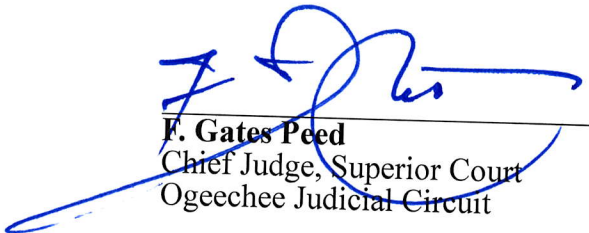 F. Gates Peed
Chief Judge, Superior Court
Ogeechee Judicial Circuit